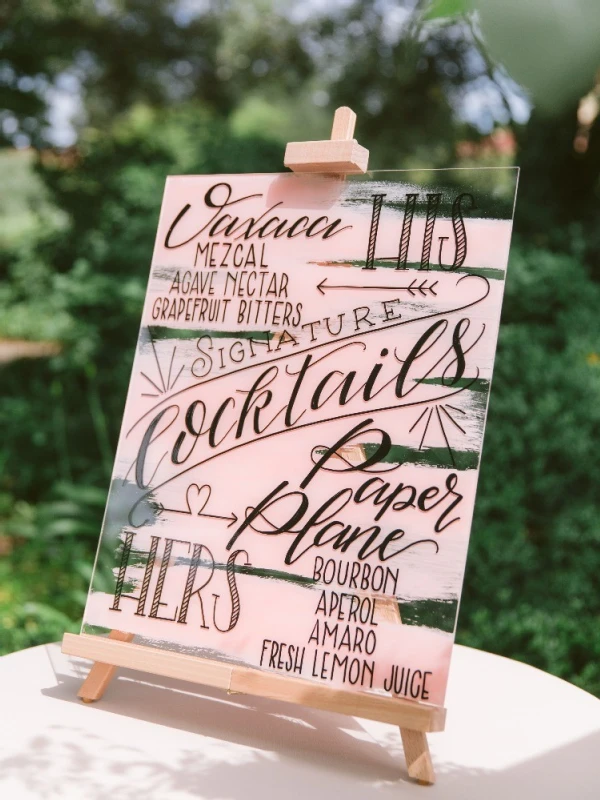 Oaxaca
MEZCAL
AGAVE NECTAR
GRAPEFRUIT BITTERS
HIS
SIGNATURE
Cocktails
HERS
Paper
Plane
BOURBON
APEROL
AMARO
FRESH LEMON JUICE